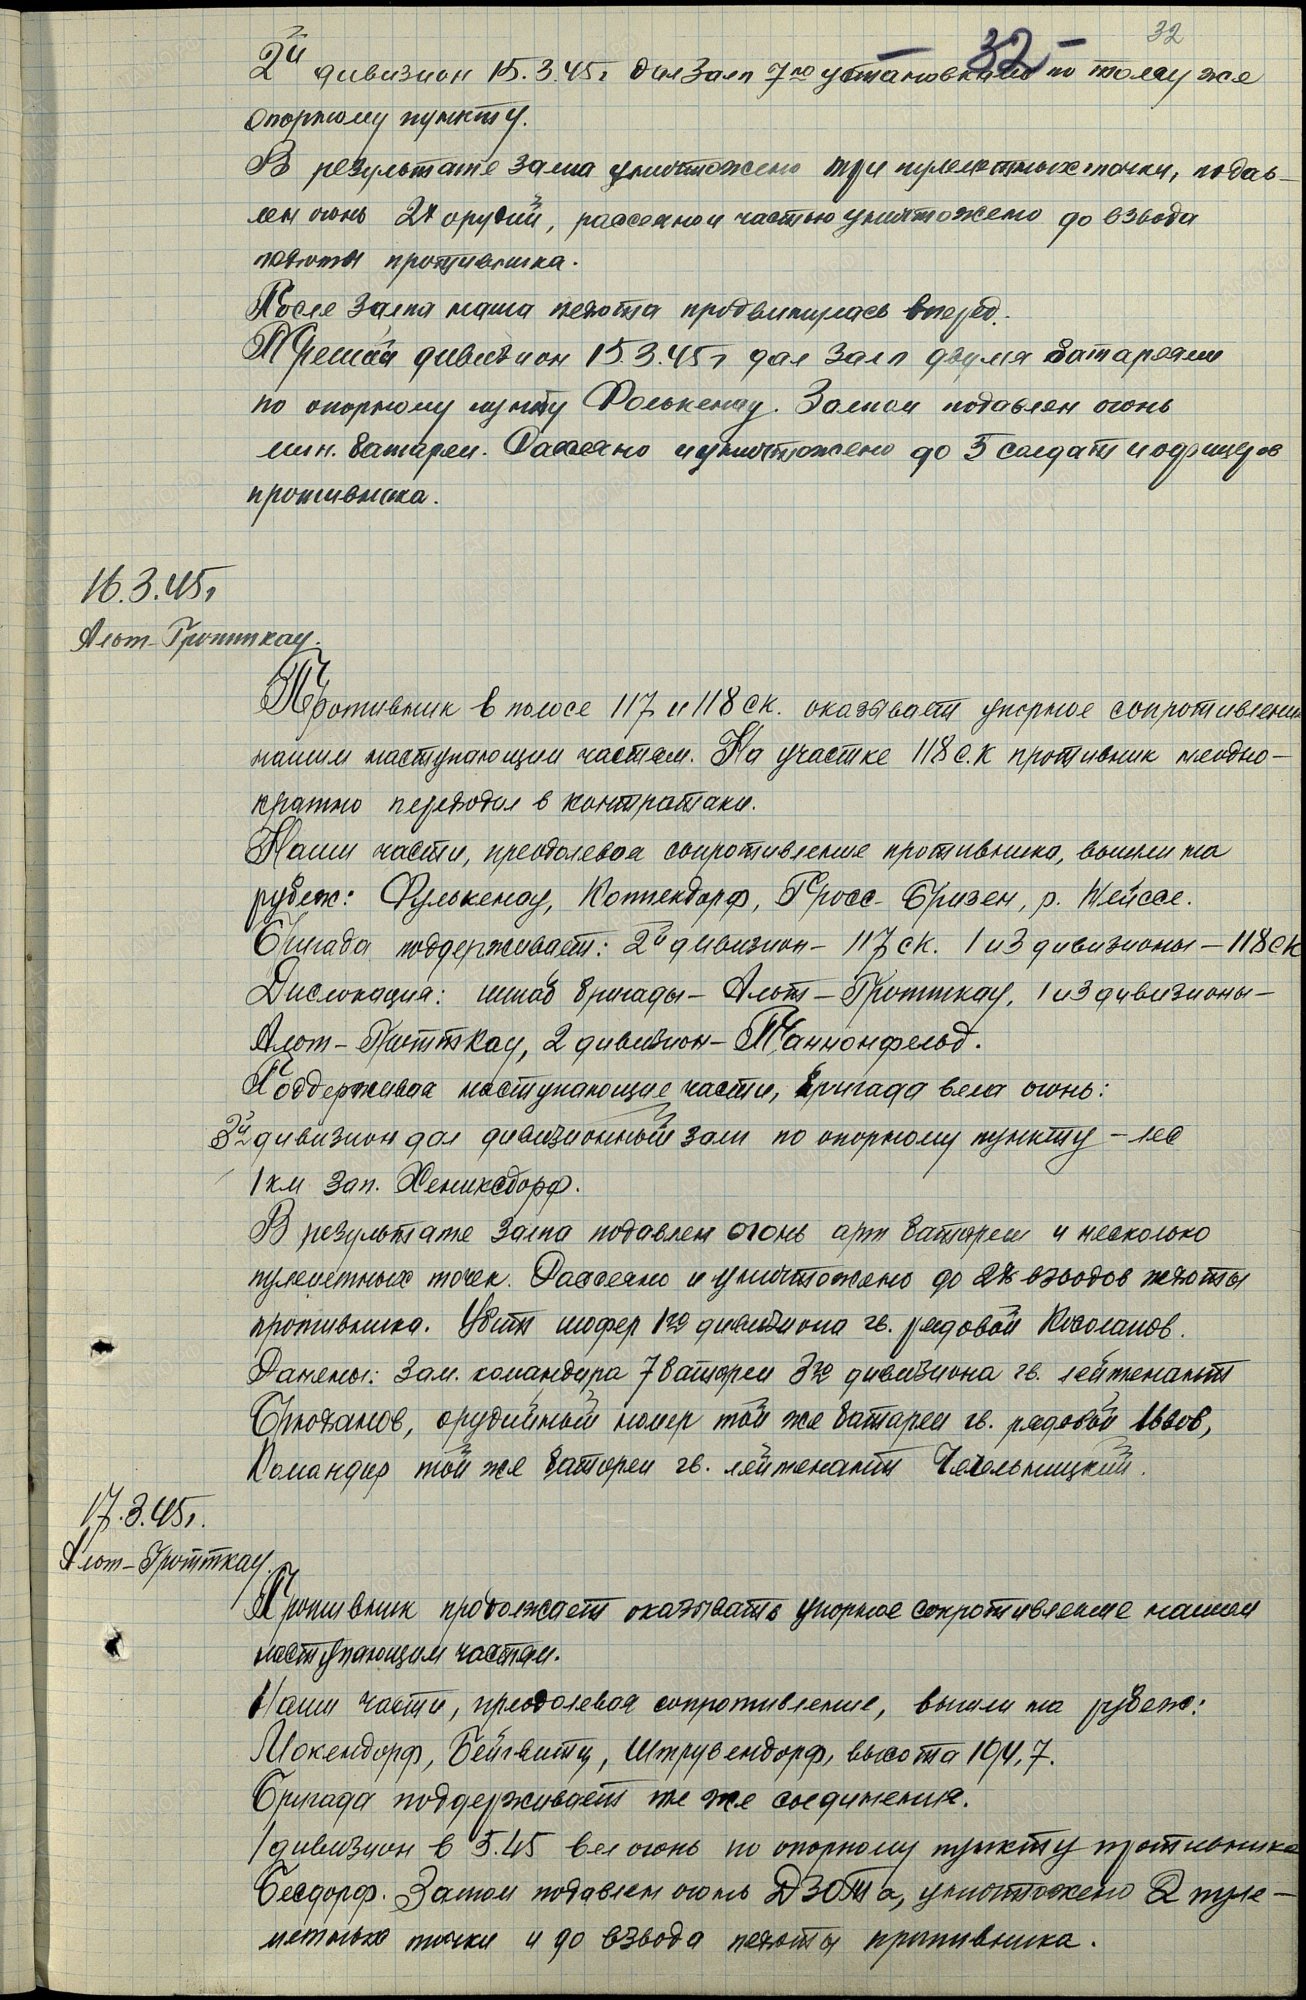 32
- 32 -
2й дивизион 15.3.45г дал залп 7ю установками по тому же
опорному пункту.
В результате залпа уничтожено три пулеметных точки, подав-
лен огонь 2х орудий, рассеяно и частью уничтожено до взвода
пехоты противника.
После залпа наша пехота продвинулась вперед.
Третий дивизион 15.3.45г дал залп двумя батареями
по опорному пункту Фолькенау. Залпом подавлен огонь
мин. батареи. Рассеяно и уничтожено до 5 солдат и офицеров
противника.
16.3.45г
Альт-Гротткау.
Противник в полосе 117 и 118 ск. оказывает упорное сопротивление
нашим наступающим частям. На участке 118 с.к противник неодно-
кратно переходил в контратаки.
Наши части, преодолевая сопротивление противника, вышли на
рубеж: Фулькенау, Коппендорф, Гросс-Бризен, р. Нейссе.
Бригада поддерживает: 2й дивизион - 117 ск. 1 и 3 дивизионы - 118 ск
Дислокация: штаб бригады - Альт-Гротткау, 1 и 3 дивизионы -
Альт-Гротткау, 2 дивизион - Танненфельд.
Поддерживая наступающие части, бригада вела огонь:
дивизион дал дивизионный залп по опорному пункту - лес
1 км зап. Хениксдорф.
В результате залпа подавлен огонь арт батареи и несколько
пулеметных точек. Рассеяно и уничтожено до 2х взводов пехоты
противника. Убит шофер 1го дивизиона гв. рядовой Косолапов.
Ранены: Зам. командира 7 батареи 3го дивизиона гв. лейтенант
орудийный номер той же батареи гв. рядовой
Командир той же батареи гв. лейтенант Чечельницкий.
17.3.45г.
Альт-Гротткау.
Противник продолжает оказывать упорное сопротивление нашим
наступающим частям.
Наши части, преодолевая сопротивление, вышли на рубеж:
Могендорф, Бейгвитц, Штрувендорф, высота 194,7.
Бригада поддерживает те же соединения.
1 дивизион в 5.45 вел огонь по опорному пункту противника
Бесдорф. Залпом подавлен огонь ДЗОТа, уничтожено 2 пуле-
метные точки и до взвода пехоты противника.